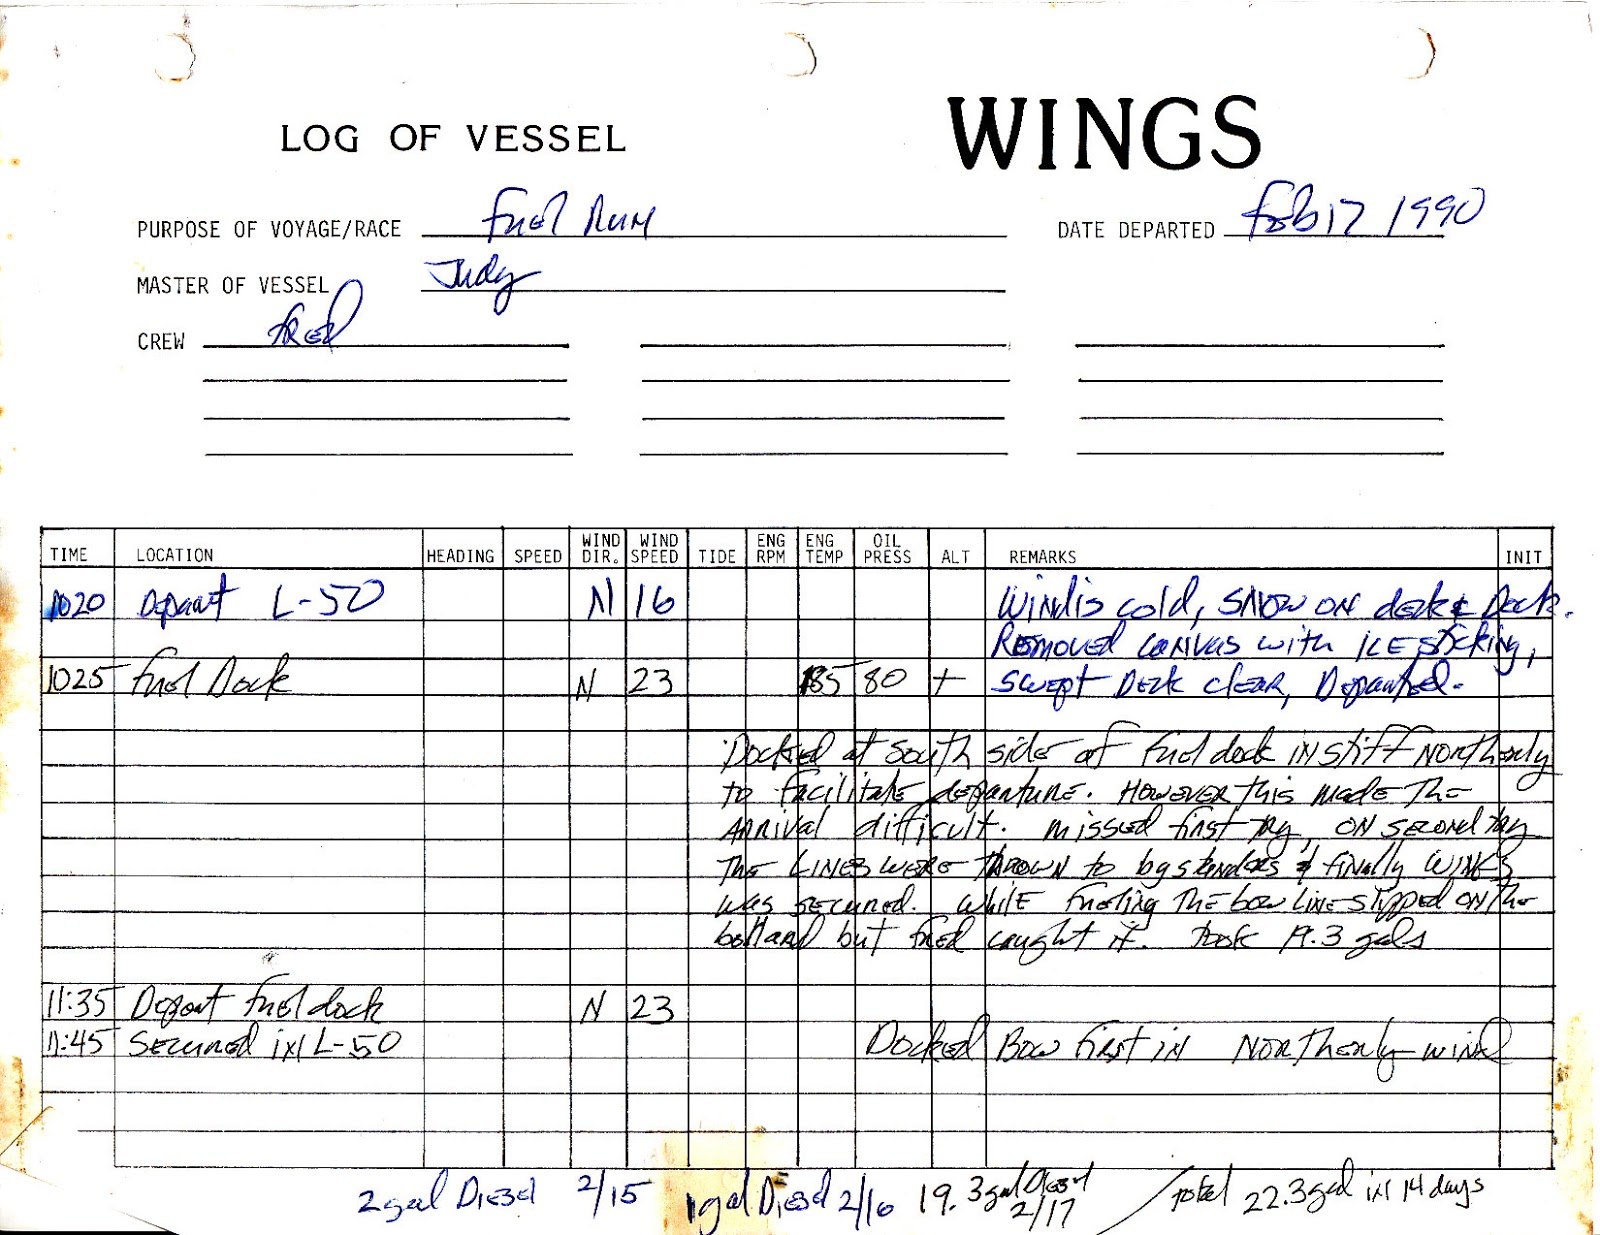 LOG OF VESSEL WINGS
PURPOSE OF VOYAGE/RACE Fuel Run DATE DEPARTED Feb 17 1990
MASTER OF VESSEL Judy
CREW Fred
TIME LOCATION HEADING SPEED WIND DIR. WIND SPEED TIDE ENG RPM ENG TEMP OIL PRESS ALT REMARKS INIT
1020 Depart L-50 N 16 Wind is cold, snow on deck & Dock.
Removed canvas with ice sticking,
1025 Fuel Dock N 23 185 80 + swept Deck clear, Departed.
Docked at south side of fuel dock in stiff Northerly
to facilitate departure. However this made the
arrival difficult. missed first try, on second try
the lines were thrown to bystanders & finally WINGS
was secured. while fueling the bow line slipped on the
bollard but fred caught it. took 19.3 gals
11:35 Depart fuel dock N 23
11:45 Secured in L-50 Docked Bow first in Northerly wind
2 gal Diesel 2/15 1 gal Diesel 2/16 19.3 gal Diesel 2/17 / total 22.3 gal in 14 days